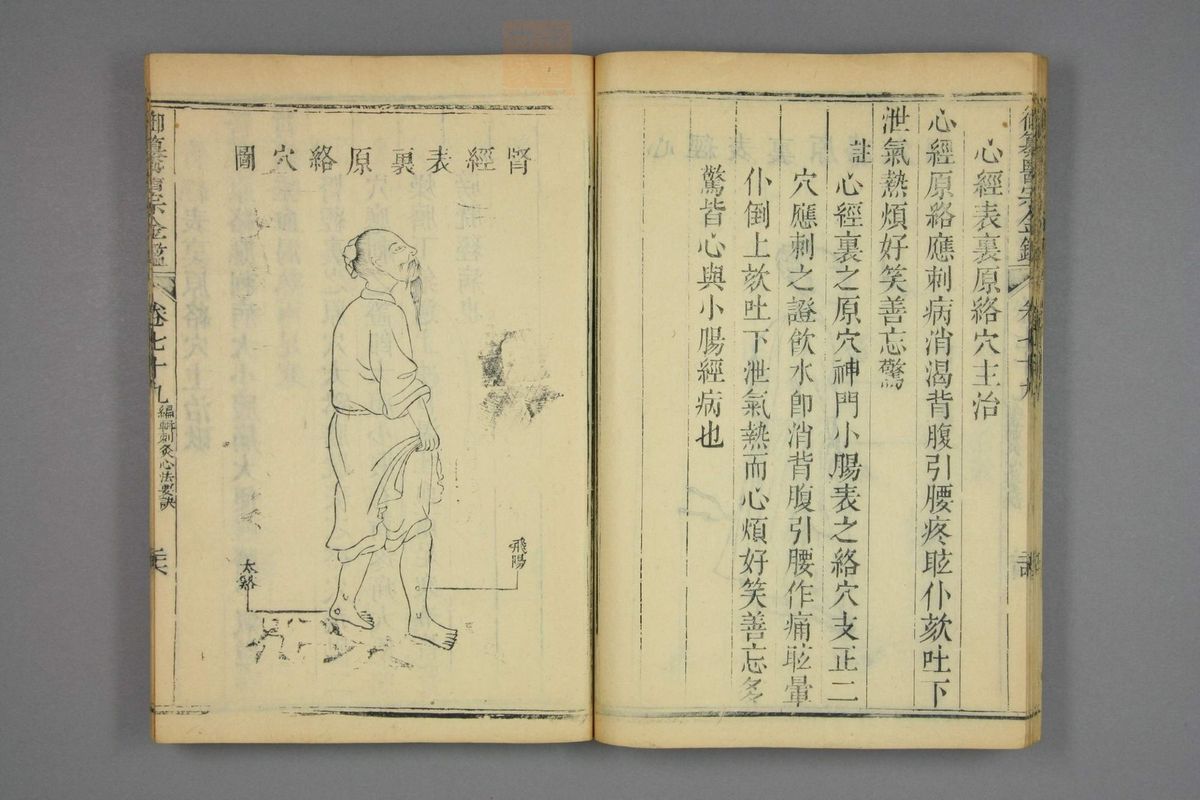 心經表裏原絡穴主治
心經原絡應刺病消渴背腹引腰疼眩仆欬吐下
泄氣熱煩好笑善忘驚
註
心經裏之原穴神門小腸表之絡穴支正二
穴應刺之證飲水卽消背腹引腰作痛眩暈
仆倒上欬吐下泄氣熱而心煩好笑善忘多
驚皆心與小腸經病也
腎經表裏原絡穴圖
飛陽
太谿
御纂醫宗金鑑
卷七十九
編輯刺灸心法要訣